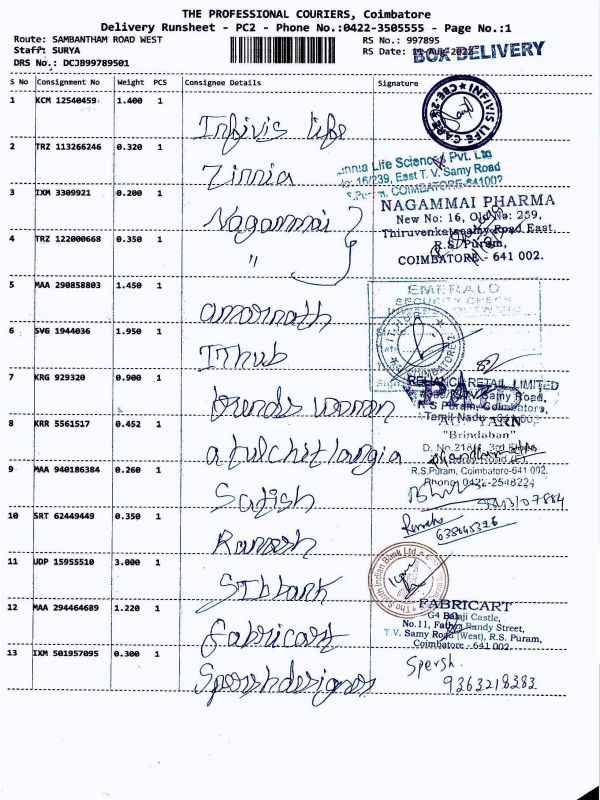 THE PROFESSIONAL COURIERS, Coimbatore
Delivery Runsheet - PC2 - Phone No.:0422-3505555 - Page No.:1
Route: SAMBANTHAM ROAD WEST
RS No.: 997895
Staff: SURYA
RS Date: 11-Aug-2022
BOX DELIVERY
DRS No.: DCJB99789501
S No Consignment No Weight PCS Consignee Details Signature
1 KCM 12540459 1.400 1 Infivis life
INFIVIS LIFE CARE
2 TRZ 113266246 0.320 1 Zinnia
Life Sciences Pvt. Ltd
16/239, East T. V. Samy Road
COIMBATORE-641002
3 IXM 3309921 0.200 1 Nagammai
NAGAMMAI PHARMA
New No: 16, Old No: 239,
Thiruvenkatasamy Road East,
R.S. Puram,
COIMBATORE - 641 002.
4 TRZ 122000668 0.350 1 "
5 MAA 290858803 1.450 1 amarnath
EMERALD
SECURITY CHECK
6 SVG 1944036 1.950 1 IThub
7 KRG 929320 0.900 1 trends woman
RELIANCE RETAIL LIMITED
Samy Road,
R S Puram, Coimbatore,
Tamil Nadu
8 KRR 5561517 0.452 1 atulchitlangia
YARN
"Brindaban"
D. No.
R.S.Puram, Coimbatore-641 002.
Phone: 0422-2548224
9 MAA 940186384 0.260 1 Satish
10 SRT 62449449 0.350 1 Ramesh
Ramesh
11 UDP 15955510 3.000 1 SIbank
The South Indian Bank Ltd.
12 MAA 294464689 1.220 1 fabricart
FABRICART
G4 Balaji Castle,
No.11, Randy Street,
T.V. Samy Road (West), R.S. Puram,
Coimbatore - 641 002.
13 IXM 501957095 0.300 1 Sparshdesigner
Spersh.
9363218383